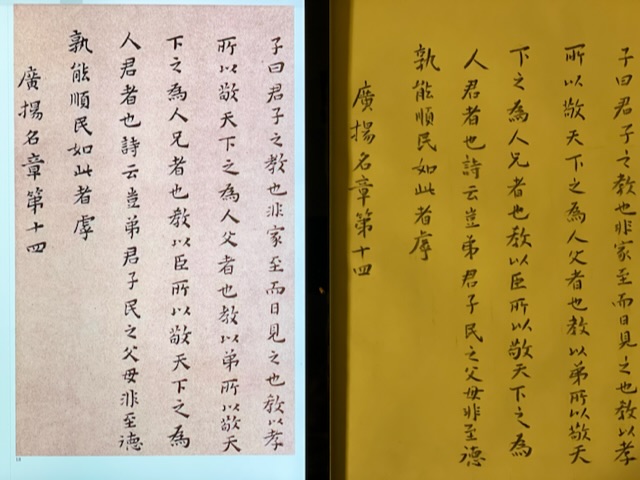 子曰君子之教也非家至而日見之也教以孝
所以敬天下之為人父者也教以弟所以敬天
下之為人兄者也教以臣所以敬天下之為
人君者也詩云豈弟君子民之父母非至德
孰能順民如此者虖
廣揚名章第十四
子曰君子之教也非家至而日見之也教以孝
所以敬天下之為人父者也教以弟所以敬天
下之為人兄者也教以臣所以敬天下之為
人君者也詩云豈弟君子民之父母非至德
孰能順民如此者虖
廣揚名章第十四